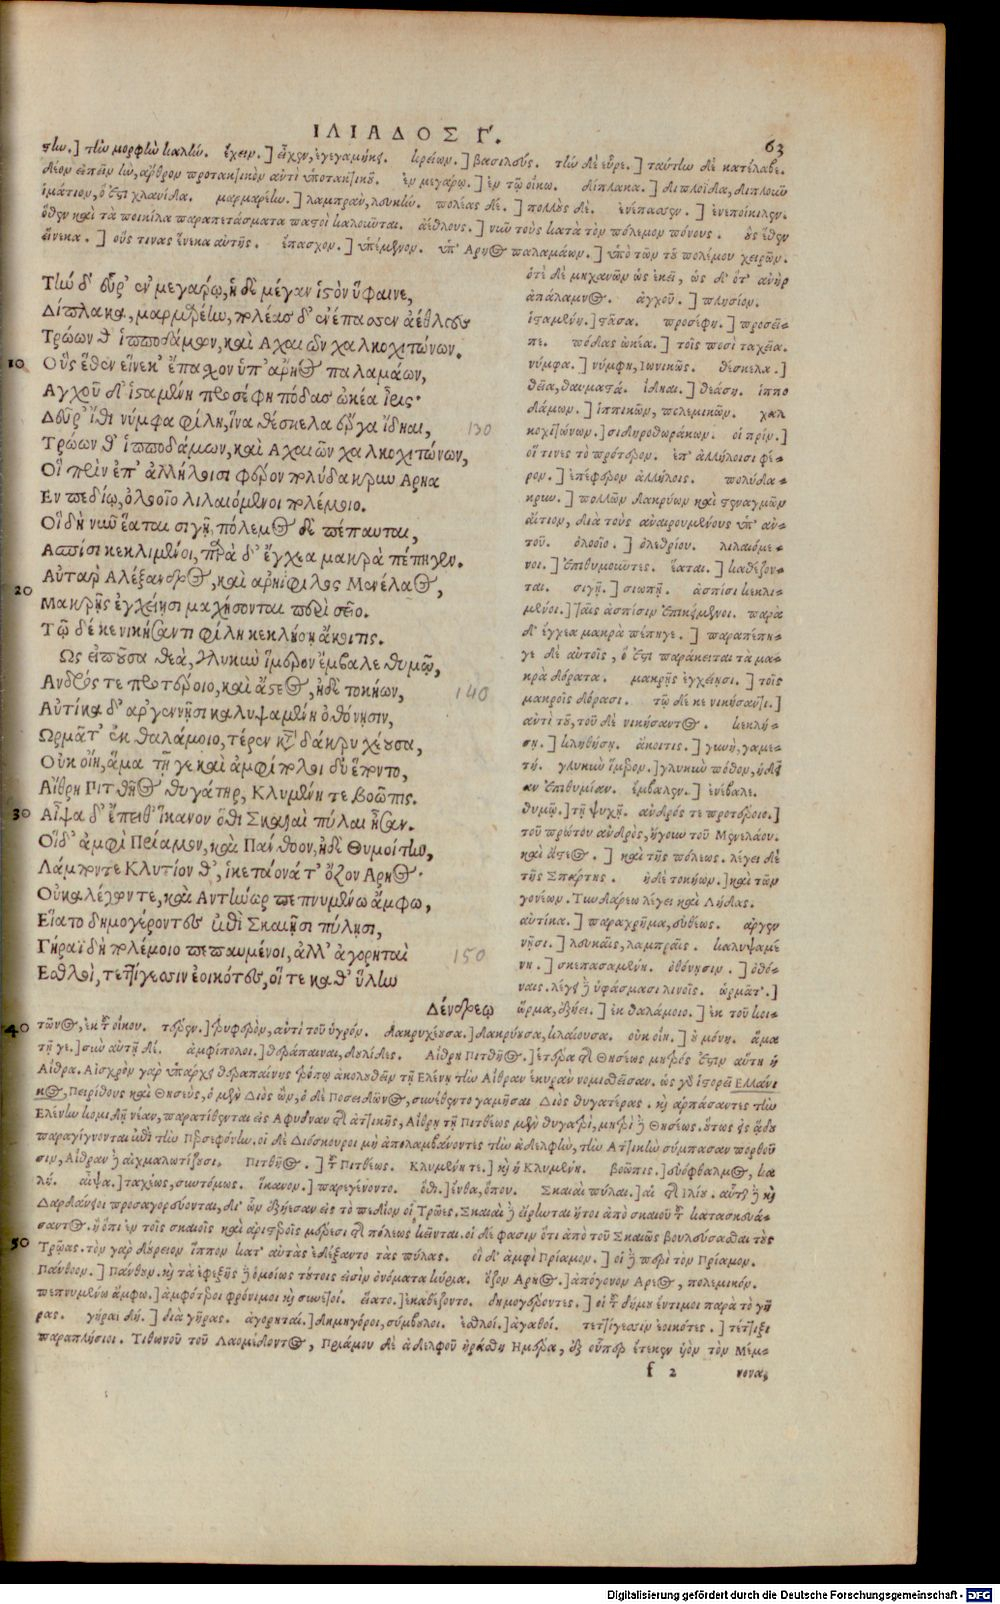 ΙΛΙΑΔΟΣ Γ. 63
την.] τὴν μορφὴν καλήν. ἔχειν.] εἶχεν, ἐγεγαμήκει. κρείων.] βασιλεύς. τὴν δὲ εὗρε.] ταύτην δὲ κατέλαβε.
δέον εἰπεῖν ἣν, ἄρθρον προτακτικὸν αὐτὶ ὑποτακτικοῦ. ἐν μεγάρῳ.] ἐν τῷ οἴκῳ. δίπλακα.] διπλοΐδα, διπλοῦν
ἱμάτιον, ὅ ἐστι χλανίδα. μαρμαρέην.] λαμπρὰν, λευκήν. πολέας δέ.] πολλοὺς δὲ. ἐνέπασσεν.] ἐνεποίκιλεν.
ὅθεν καὶ τὰ ποικίλα παραπετάσματα παστοὶ καλοῦνται. ἀέθλους.] νῦν τοὺς κατὰ τὸν πόλεμον πόνους. οὓς ἕθεν
εἵνεκα.] οὕς τινας ἕνεκα αὐτῆς. ἔπασχον.] ὑπέμενον. ὑπ' Αρηος παλαμάων.] ὑπὸ τῶν τοῦ πολέμου χειρῶν.
Τὴν δ' εὗρ' ἐν μεγάρῳ, ἡ δὲ μέγαν ἱστὸν ὕφαινε,
Δίπλακα, μαρμαρέην, πολέας δ' ἐνέπασσεν ἀέθλους
Τρώων θ' ἱπποδάμων, καὶ Αχαιῶν χαλκοχιτώνων.
10 Οὓς ἕθεν εἵνεκ' ἔπασχον ὑπ' ἄρηος παλαμάων,
Αγχοῦ δ' ἱσταμένη προσέφη πόδας ὠκέα ἶρις·
Δεῦρ' ἴθι νύμφα φίλη, ἵνα θέσκελα ἔργα ἴδηαι, 130
Τρώων θ' ἱπποδάμων, καὶ Αχαιῶν χαλκοχιτώνων,
Οἳ πρὶν ἐπ' ἀλλήλοισι φέρον πολύδακρυν Αρηα
Εν πεδίῳ, ὀλοοῖο λιλαιόμενοι πολέμοιο.
Οἳ δὴ νῦν ἕαται σιγῇ, πόλεμος δὲ πέπαυται,
Ασπίσι κεκλιμένοι, παρὰ δ' ἔγχεα μακρὰ πέπηγεν.
Αὐτὰρ Αλέξανδρος, καὶ ἀρηΐφιλος Μενέλαος,
20 Μακρῇς ἐγχείῃσι μαχήσονται περὶ σεῖο.
Τῷ δέ κε νικήσαντι φίλη κεκλήσῃ ἄκοιτις.
Ως εἰποῦσα θεὰ, γλυκὺν ἵμερον ἔμβαλε θυμῷ,
Ανδρός τε προτέροιο, καὶ ἄστεος, ἠδὲ τοκήων, 140
Αὐτίκα δ' ἀργεννῇσι καλυψαμένη ὀθόνῃσιν,
Ωρμᾶτ' ἐκ θαλάμοιο, τέρεν κατὰ δάκρυ χέουσα,
Οὐκ οἴη, ἅμα τῇ γε καὶ ἀμφίπολοι δύ' ἕποντο,
Αἴθρη Πιτθῆος θυγάτηρ, Κλυμένη τε βοῶπις.
30 Αἶψα δ' ἔπειθ' ἵκανον ὅθι Σκαιαὶ πύλαι ἦσαν.
Οἳ δ' ἀμφὶ Πρίαμον, καὶ Πάνθοον, ἠδὲ Θυμοίτην,
Λάμπον τε Κλυτίον θ', ἱκετάονά τ' ὄζον Αρηος·
Οὐκαλέγων τε, καὶ Αντήνωρ πεπνυμένω ἄμφω,
Εἵατο δημογέροντες ἐπὶ Σκαιῇσι πύλῃσι,
Γήραϊ δὴ πολέμοιο πεπαυμένοι, ἀλλ' ἀγορηταὶ 150
Εσθλοὶ, τεττίγεσσιν ἐοικότες, οἵ τε καθ' ὕλην
Δένδρεῳ
ὅτε δὲ μηχανῶν ὡς ἐκεῖ, ὡς δ' ὅτ' ανὴρ
ἀπάλαμνος. ἀγχοῦ.] πλησίον.
ἱσταμένη.] στᾶσα. προσέφη.] προσεῖ-
πε. πόδας ὠκέα.] τοῖς ποσὶ ταχεῖα.
νύμφα.] νύμφη, Ιωνικῶς. θέσκελα.]
θεῖα, θαυμαστά. ἴδηαι.] θεάσῃ. ἱππο
δάμων.] ἱππικῶν, πολεμικῶν. χαλ
κοχιτώνων.] σιδηροθωράκων. οἱ πρίν.]
οἵ τινες τὸ πρότερον. ἐπ' ἀλλήλοισι φέ-
ρον.] ἐπέφερον ἀλλήλοις. πολύδα-
κρυν.] πολλῶν δακρύων καὶ στεναγμῶν
αἴτιον, διὰ τοὺς ἀναιρουμένους ὑπ' αὐ-
τοῦ. ὀλοοῖο.] ὀλεθρίου. λιλαιόμε-
νοι.] ἐπιθυμοῦντες. ἕαται.] καθέζον-
ται. σιγῇ.] σιωπῇ. ἀσπίσι κεκλι-
μένοι.] ταῖς ἀσπίσιν ἐπικείμενοι. παρὰ
δ' ἔγχεα μακρὰ πέπηγε.] παραπέπη-
γε δὲ αὐτοῖς, ὅ ἐστι παράκειται τὰ μα-
κρὰ δόρατα. μακρῇς ἐγχείῃσι.] τοῖς
μακροῖς δόρασι. τῷ δέ κε νικήσαντι.]
αὐτὶ τοῦ, τοῦ δὲ νικήσαντος. κεκλή-
σῃ.] κληθήσῃ. ἄκοιτις.] γυνή, γαμε-
τή. γλυκὺν ἵμερον.] γλυκὺν πόθον, ἡδεῖ
αν ἐπιθυμίαν. ἔμβαλεν.] ἐνέβαλε.
θυμῷ.] τῇ ψυχῇ. ανδρός τε προτέροιο.]
τοῦ πρώτου ανδρὸς, ἤγουν τοῦ Μενελάου.
καὶ ἄστεος.] καὶ τῆς πόλεως. λέγει δὲ
τῆς Σπάρτης. ἠδὲ τοκήων.] καὶ τῶν
γονέων. Τυνδάρεω λέγει καὶ Λήδας.
αὐτίκα.] παραχρῆμα, εὐθέως. ἀργεν
νῇσι.] λευκαῖς, λαμπραῖς. καλυψαμέ
νη.] σκεπασαμένη. ὀθόνῃσιν.] ὀθό-
ναις. λέγει δὲ ὑφάσμασι λινοῖς. ὡρμᾶτ'.]
ὥρμα, ἐξῄει.] ἐκ θαλάμοιο.] ἐκ τοῦ κοι-
40 τῶνος, ἐκ τοῦ οἴκου. τέρεν.] τρυφερὸν, αὐτὶ τοῦ ὑγρόν. δακρυχέουσα.] δακρύουσα, κλαίουσα. οὐκ οἴη.] οὐ μόνη. ἅμα
τῇ γε.] σὺν αὐτῇ δέ. ἀμφίπολοι.] θεράπαιναι, δουλίδες. Αἴθρη Πιτθῆος.] ἑτέρα τοῦ Θησέως μητρός ἐστιν αὕτη ἡ
Αἴθρα. Αἰσχρὸν γὰρ ὑπάρχει θεραπαίνης τρόπῳ ἀκολουθεῖν τῇ Ελένῃ τὴν Αἴθραν ἑκυρὰν νομισθεῖσαν. ὡς γὰρ ἱστορεῖ Ελλάνι
κος, Πειρίθους καὶ Θησεὺς, ὁ μὲν Διὸς ὢν, ὁ δὲ Ποσειδῶνος, συνέθεντο γαμῆσαι Διὸς θυγατέρας. καὶ ἁρπάσαντες τὴν
Ελένην κομιδῇ νέαν, παρατίθενται εἰς Αφιδναν τῆς ἀττικῆς, Αἴθρῃ τῇ Πιτθέως μὲν θυγατρὶ, μητρὶ δὲ Θησέως. οὕτως εἰς ᾅδου
παραγίγνονται ἐπὶ τὴν Περσεφόνην. οἱ δὲ Διόσκουροι μὴ ἀπολαμβάνοντες τὴν ἀδελφὴν, τὴν Αττικὴν σύμπασαν πορθοῦ
σιν, Αἴθραν δὲ αἰχμαλωτίζουσι. Πιτθῆος.] τοῦ Πιτθέως. Κλυμένη τε.] καὶ ἡ Κλυμένη. βοῶπις.] εὐόφθαλμος, κα
λή. αἶψα.] ταχέως, συντόμως. ἵκανον.] παρεγένοντο. ὅθι.] ἔνθα, ὅπου. Σκαιαὶ πύλαι.] αἱ τοῦ Ιλίου. αὗται δὲ καὶ
Δαρδάνιοι προσαγορεύονται, δι' ὧν ἐξῄεσαν εἰς τὸ πεδίον οἱ Τρῶες. Σκαιαὶ δὲ εἴρηνται ἤτοι ἀπὸ σκαιοῦ τοῦ κατασκευά-
σαντος. ἢ ὅτι ἐν τοῖς σκαιοῖς καὶ ἀριστεροῖς μέρεσι τῆς πόλεως κεῖνται. οἱ δέ φασιν ὅτι ἀπὸ τοῦ Σκαιῶς βουλεύσασθαι τοὺς
50 Τρῶας. τὸν γὰρ δούρειον ἵππον κατ' αὐτὰς ἐδέξαντο τὰς πύλας. οἱ δ' ἀμφὶ Πρίαμον.] οἱ δὲ περὶ τὸν Πρίαμον.
Πάνθοον.] Πάνθουν. καὶ τὰ ἐφεξῆς δὲ ὁμοίως τούτοις εἰσὶν ὀνόματα κύρια. ὄζον Αρηος.] ἀπόγονον Αρεος, πολεμικόν.
πεπνυμένω ἄμφω.] ἀμφότεροι φρόνιμοι καὶ συνετοί. εἵατο.] ἐκαθέζοντο. δημογέροντες.] οἱ τοῦ δήμου ἔντιμοι παρὰ τὸ γῆ
ρας. γήραι δή.] διὰ γῆρας. ἀγορηταί.] δημηγόροι, σύμβουλοι. ἐσθλοί.] ἀγαθοί. τεττίγεσσιν ἐοικότες.] τέττιξι
παραπλήσιοι. Τιθωνοῦ τοῦ Λαομέδοντος, Πριάμου δὲ ἀδελφοῦ ἠράσθη Ημέρα, ἐξ οὗπερ ἔτεκεν υἱὸν τὸν Μέμ-
f 2 νονα,
Digitalisierung gefördert durch die Deutsche Forschungsgemeinschaft - DFG